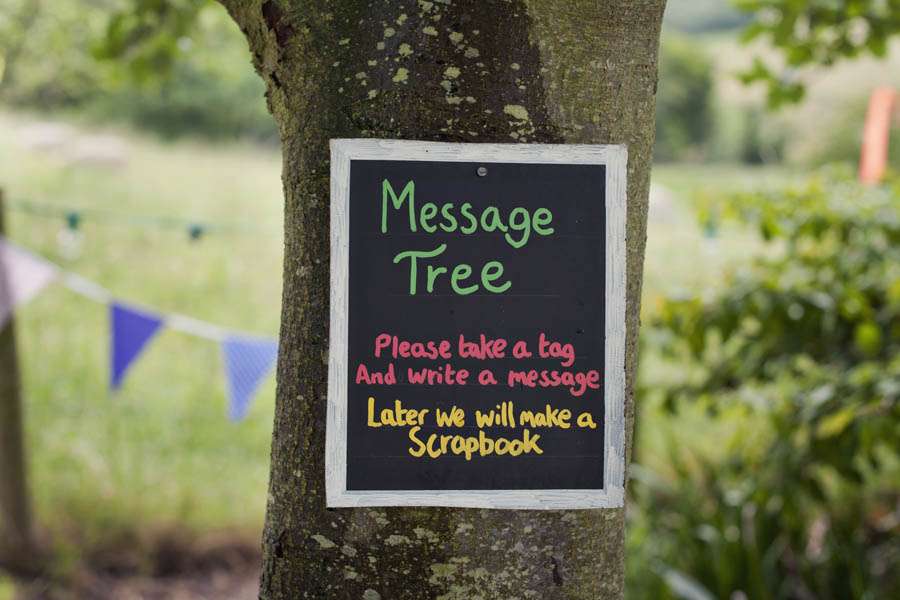 Message
Tree
Please take a tag
And write a message
Later we will make a
Scrapbook